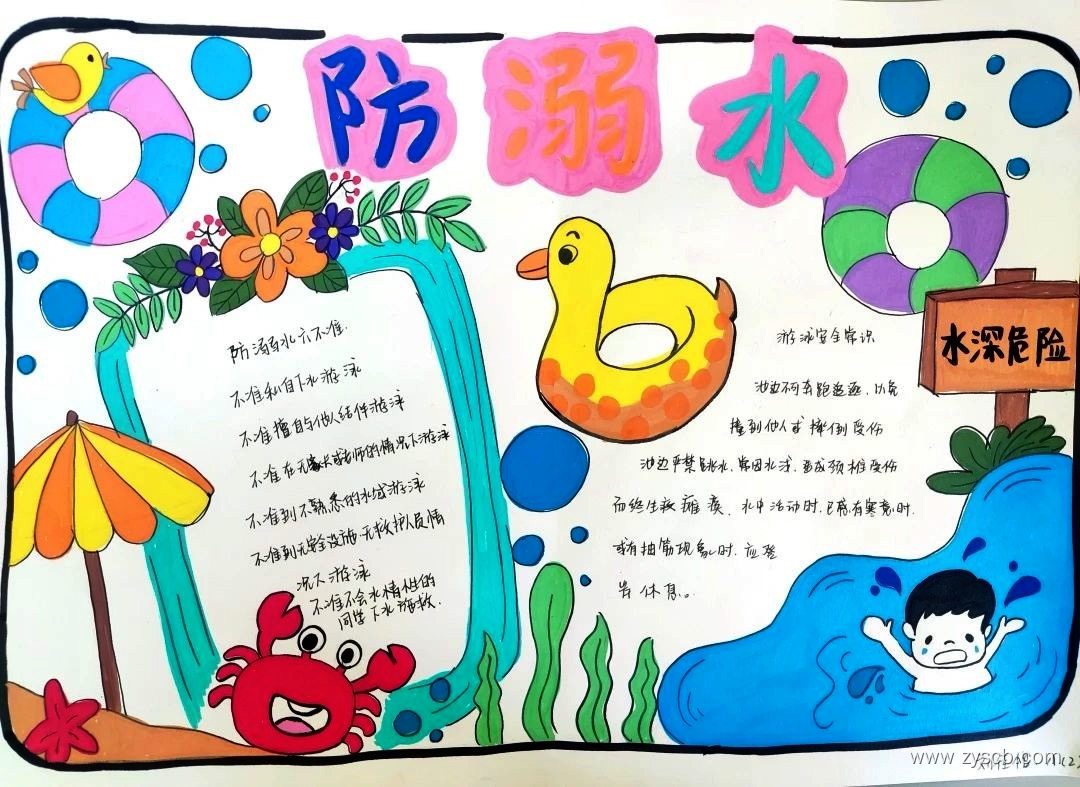 防溺水
防溺水六不准
不准私自下水游泳
不准擅自与他人结伴游泳
不准在无家长或老师的情况下游泳
不准到不熟悉的水域游泳
不准到无安全设施.无救护人员情
况下游泳
不准不会水情性的
同学下水施救.
游泳安全常识
池边不可奔跑追逐.以免
撞到他人或摔倒受伤
池边严禁跳水.常因水浅.造成颈椎受伤
而终生瘫痪.水中活动时.已感有寒意时.
或有抽筋现象时.应登
岸休息。
水深危险
www.zyscb.com